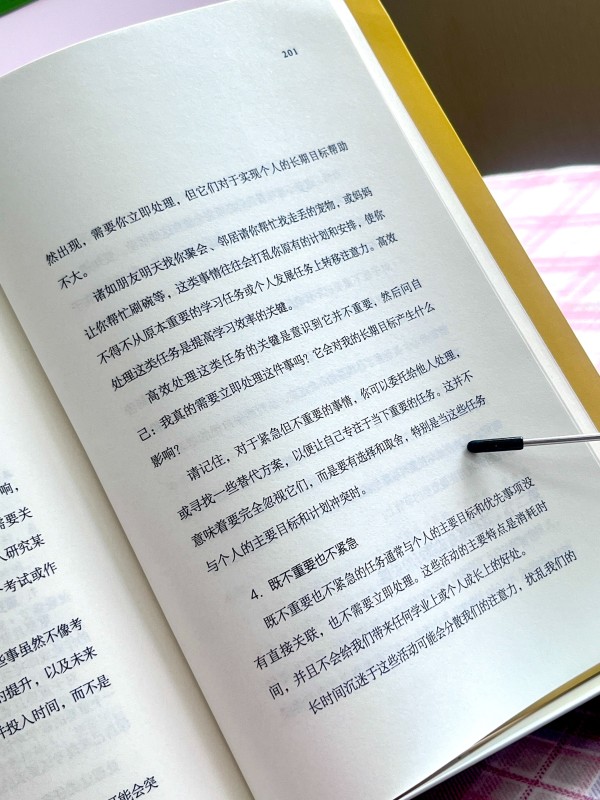 响，
需要关
人研究某
考试或作
些事虽然不像考
的提升，以及未来
并投入时间，而不是
可能会突
201
然出现，需要你立即处理，但它们对于实现个人的长期目标帮助
不大。
诸如朋友明天找你聚会、邻居请你帮忙找走丢的宠物，或妈妈
让你帮忙刷碗等，这类事情往往会打乱你原有的计划和安排，使你
不得不从原本重要的学习任务或个人发展任务上转移注意力。高效
处理这类任务是提高学习效率的关键。
高效处理这类任务的关键是意识到它并不重要，然后问自
己：我真的需要立即处理这件事吗？它会对我的长期目标产生什么
影响？
请记住，对于紧急但不重要的事情，你可以委托给他人处理，
或寻找一些替代方案，以便让自己专注于当下重要的任务。这并不
意味着要完全忽视它们，而是要有选择和取舍，特别是当这些任务
与个人的主要目标和计划冲突时。
4．既不重要也不紧急
既不重要也不紧急的任务通常与个人的主要目标和优先事项没
有直接关联，也不需要立即处理。这些活动的主要特点是消耗时
间，并且不会给我们带来任何学业上或个人成长上的好处。
长时间沉迷于这些活动可能会分散我们的注意力，扰乱我们的